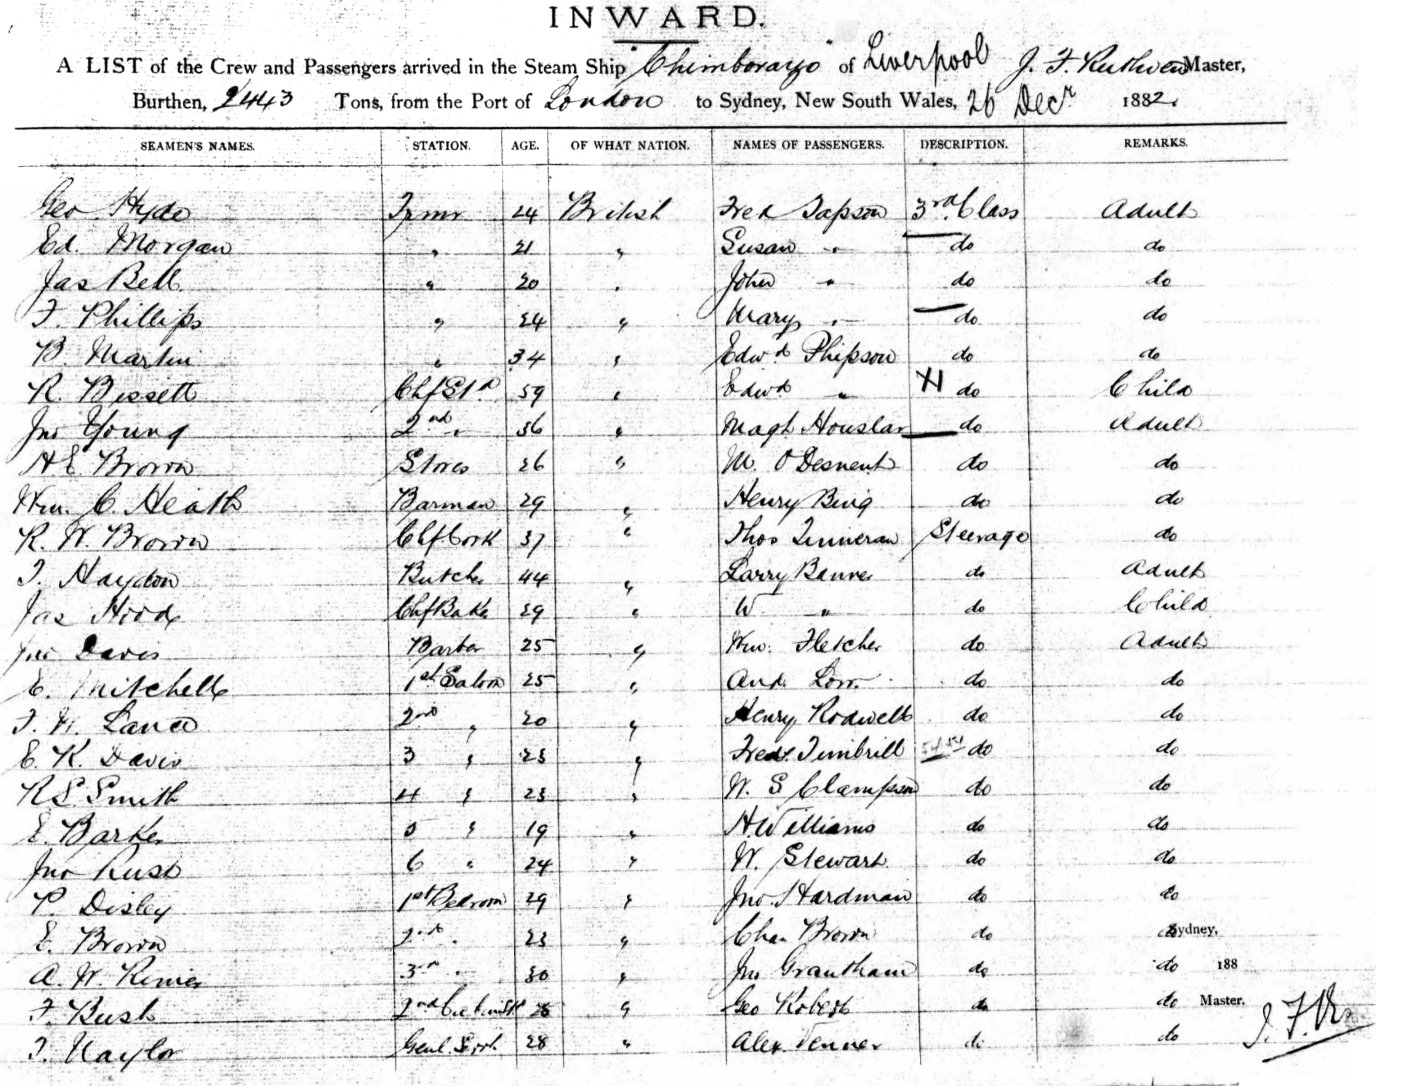 INWARD.
A LIST of the Crew and Passengers arrived in the Steam Ship "Chimborazo" of Liverpool J. F. Ruthven Master,
Burthen, 2443 Tons, from the Port of London to Sydney, New South Wales, 26 Decr 1882.
SEAMEN'S NAMES. STATION. AGE. OF WHAT NATION. NAMES OF PASSENGERS. DESCRIPTION. REMARKS.
Geo Hyde 24 British Fred Tapson 3rd Class Adult
Ed. Morgan " 21 " Susan " do do
Jas Bell " 20 " John " do do
F. Phillips " 24 " Mary " do do
B. Martin " 34 " Edwd Phipson do do
R. Bissett Chf Std 59 " Edwd " do Child
Jno Young 2nd " 36 " Magt Houslar do Adult
H E Brown Stores 26 " M. do do
Wm. C. Heath Barman 29 " Henry Bing do do
R. W. Brown Chf Cook 37 " Thos Steerage do
T. Haydon Butcher 44 " Larry do Adult
Jas Hood Chf Baker 29 " W " do Child
Jno Davis Barber 25 " Wm. Fletcher do Adult
E. Mitchell 1st Saloon 25 " And. Low. do do
F. H. Lance 2nd " 20 " Henry Rodwell do do
E. K. Davis 3 " 23 " Fredk Timbrill do do
R S Smith 4 " 23 " W. S Clampson do do
E. Barker 5 " 19 " H Williams do do
Jno Rush 6 " 24 " W. Stewart do do
P. Disley 1st Bedroom 29 " Jno. Hardman do do
E. Brown 2nd " 23 " Chas Brown do do Sydney,
A. W. Rimer 3rd " 30 " Jno Grantham do do 188
F. Bush 2nd 25 " Geo Roberts do do Master.
T. Naylor Genl 28 " Alex. Venner do do J. F. Ru